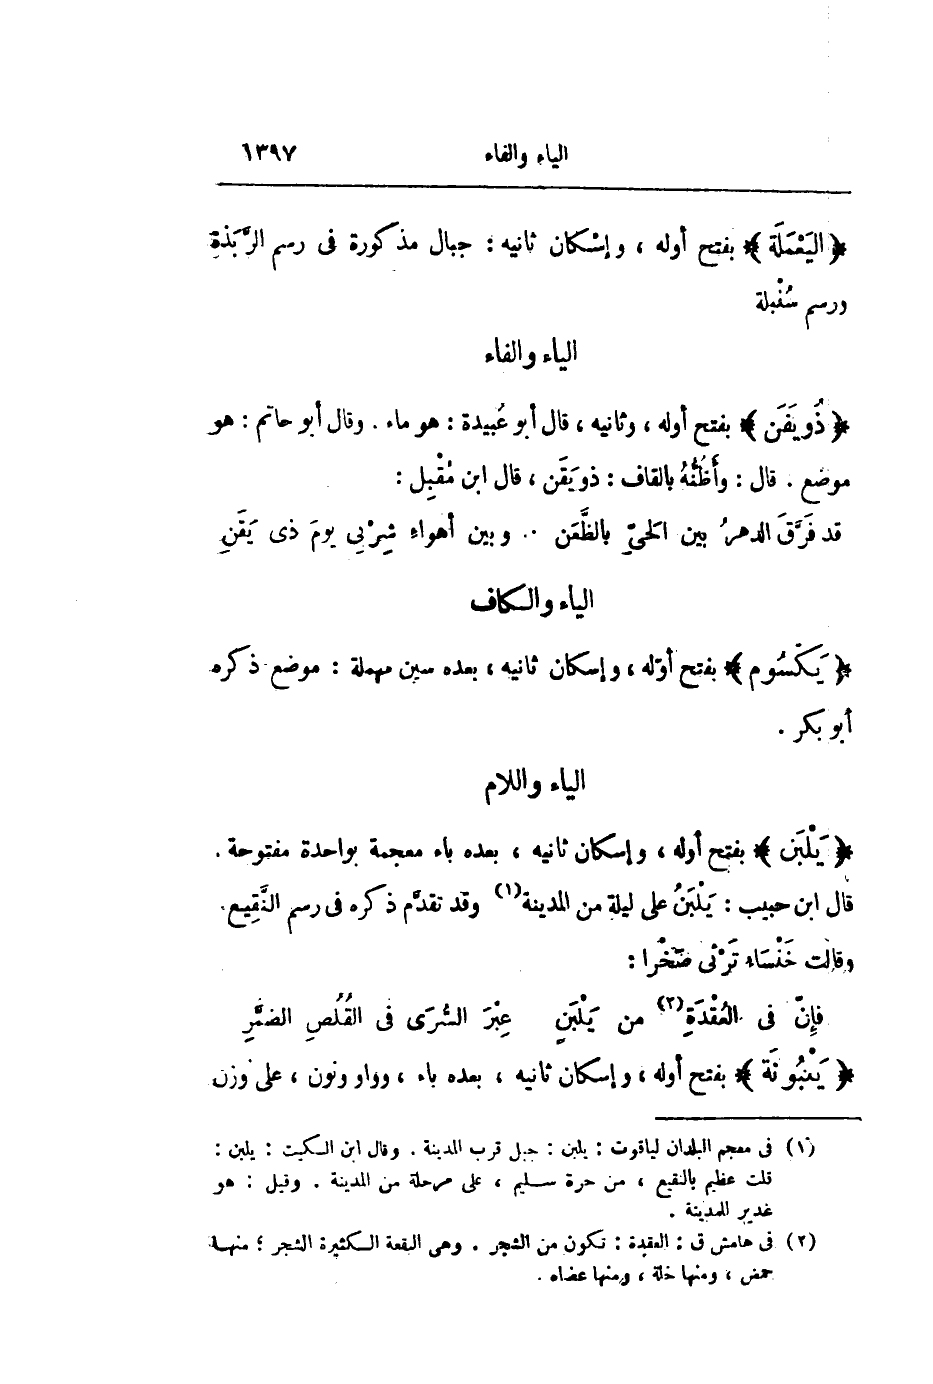 الياء والفاء ١٣٩٧
﴿ اليَعْمَلَة ﴾ بفتح أوله ، وإسْكان ثانيه : جبال مذكورة فى رسم الرَّبَذة
ورسم سُنْبلة
الياء والفاء
﴿ ذُو يَفَن ﴾ بفتح أوله ، وثانيه ، قال أبو عُبيدة : هو ماء . وقال أبو حاتم : هو
موضع . قال : وأَظُنُّهُ بالقاف : ذو يَقَن ، قال ابن مُقْبِل :
قد فَرَّقَ الدهرُ بين الحَىّ بالظَّعَن .. وبين أهواءِ شِرْبٍ يومَ ذى يَقَنِ
الياء والكاف
﴿ يَكْسُوم ﴾ بفتح أوّله ، وإسكان ثانيه ، بعده سين مهملة : موضع ذكره
أبو بكر .
الياء واللام
﴿ يَلْبَن ﴾ بفتح أوله ، وإسكان ثانيه ، بعده باء معجمة بواحدة مفتوحة .
قال ابن حبيب : يَلْبَنُ على ليلة من المدينة(١) وقد تقدَّم ذكره فى رسم النَّقِيع .
وقالت خَنْسَاء تَرْثى صَخْرا :
فإِنّ فى العُقْدَةِ(٢) من يَلْبَنٍ عِبْرَ السُّرَى فى القُلُصِ الضمَّرِ
﴿ يَنْبُوثَة ﴾ بفتح أوله ، وإسكان ثانيه ، بعده باء ، وواو ونون ، على وزن
(١) فى معجم البلدان لياقوت : يلبن : جبل قرب المدينة . وقال ابن السكيت : يلبن :
قلت عظيم بالنقيع ، من حرة سليم ، على مرحلة من المدينة . وقيل : هو
غدير للمدينة .
(٢) فى هامش ق : العقدة : تكون من الشجر . وهى البقعة الكثيرة الشجر ؛ منها
حمض ، ومنها خلة ، ومنها عضاه .